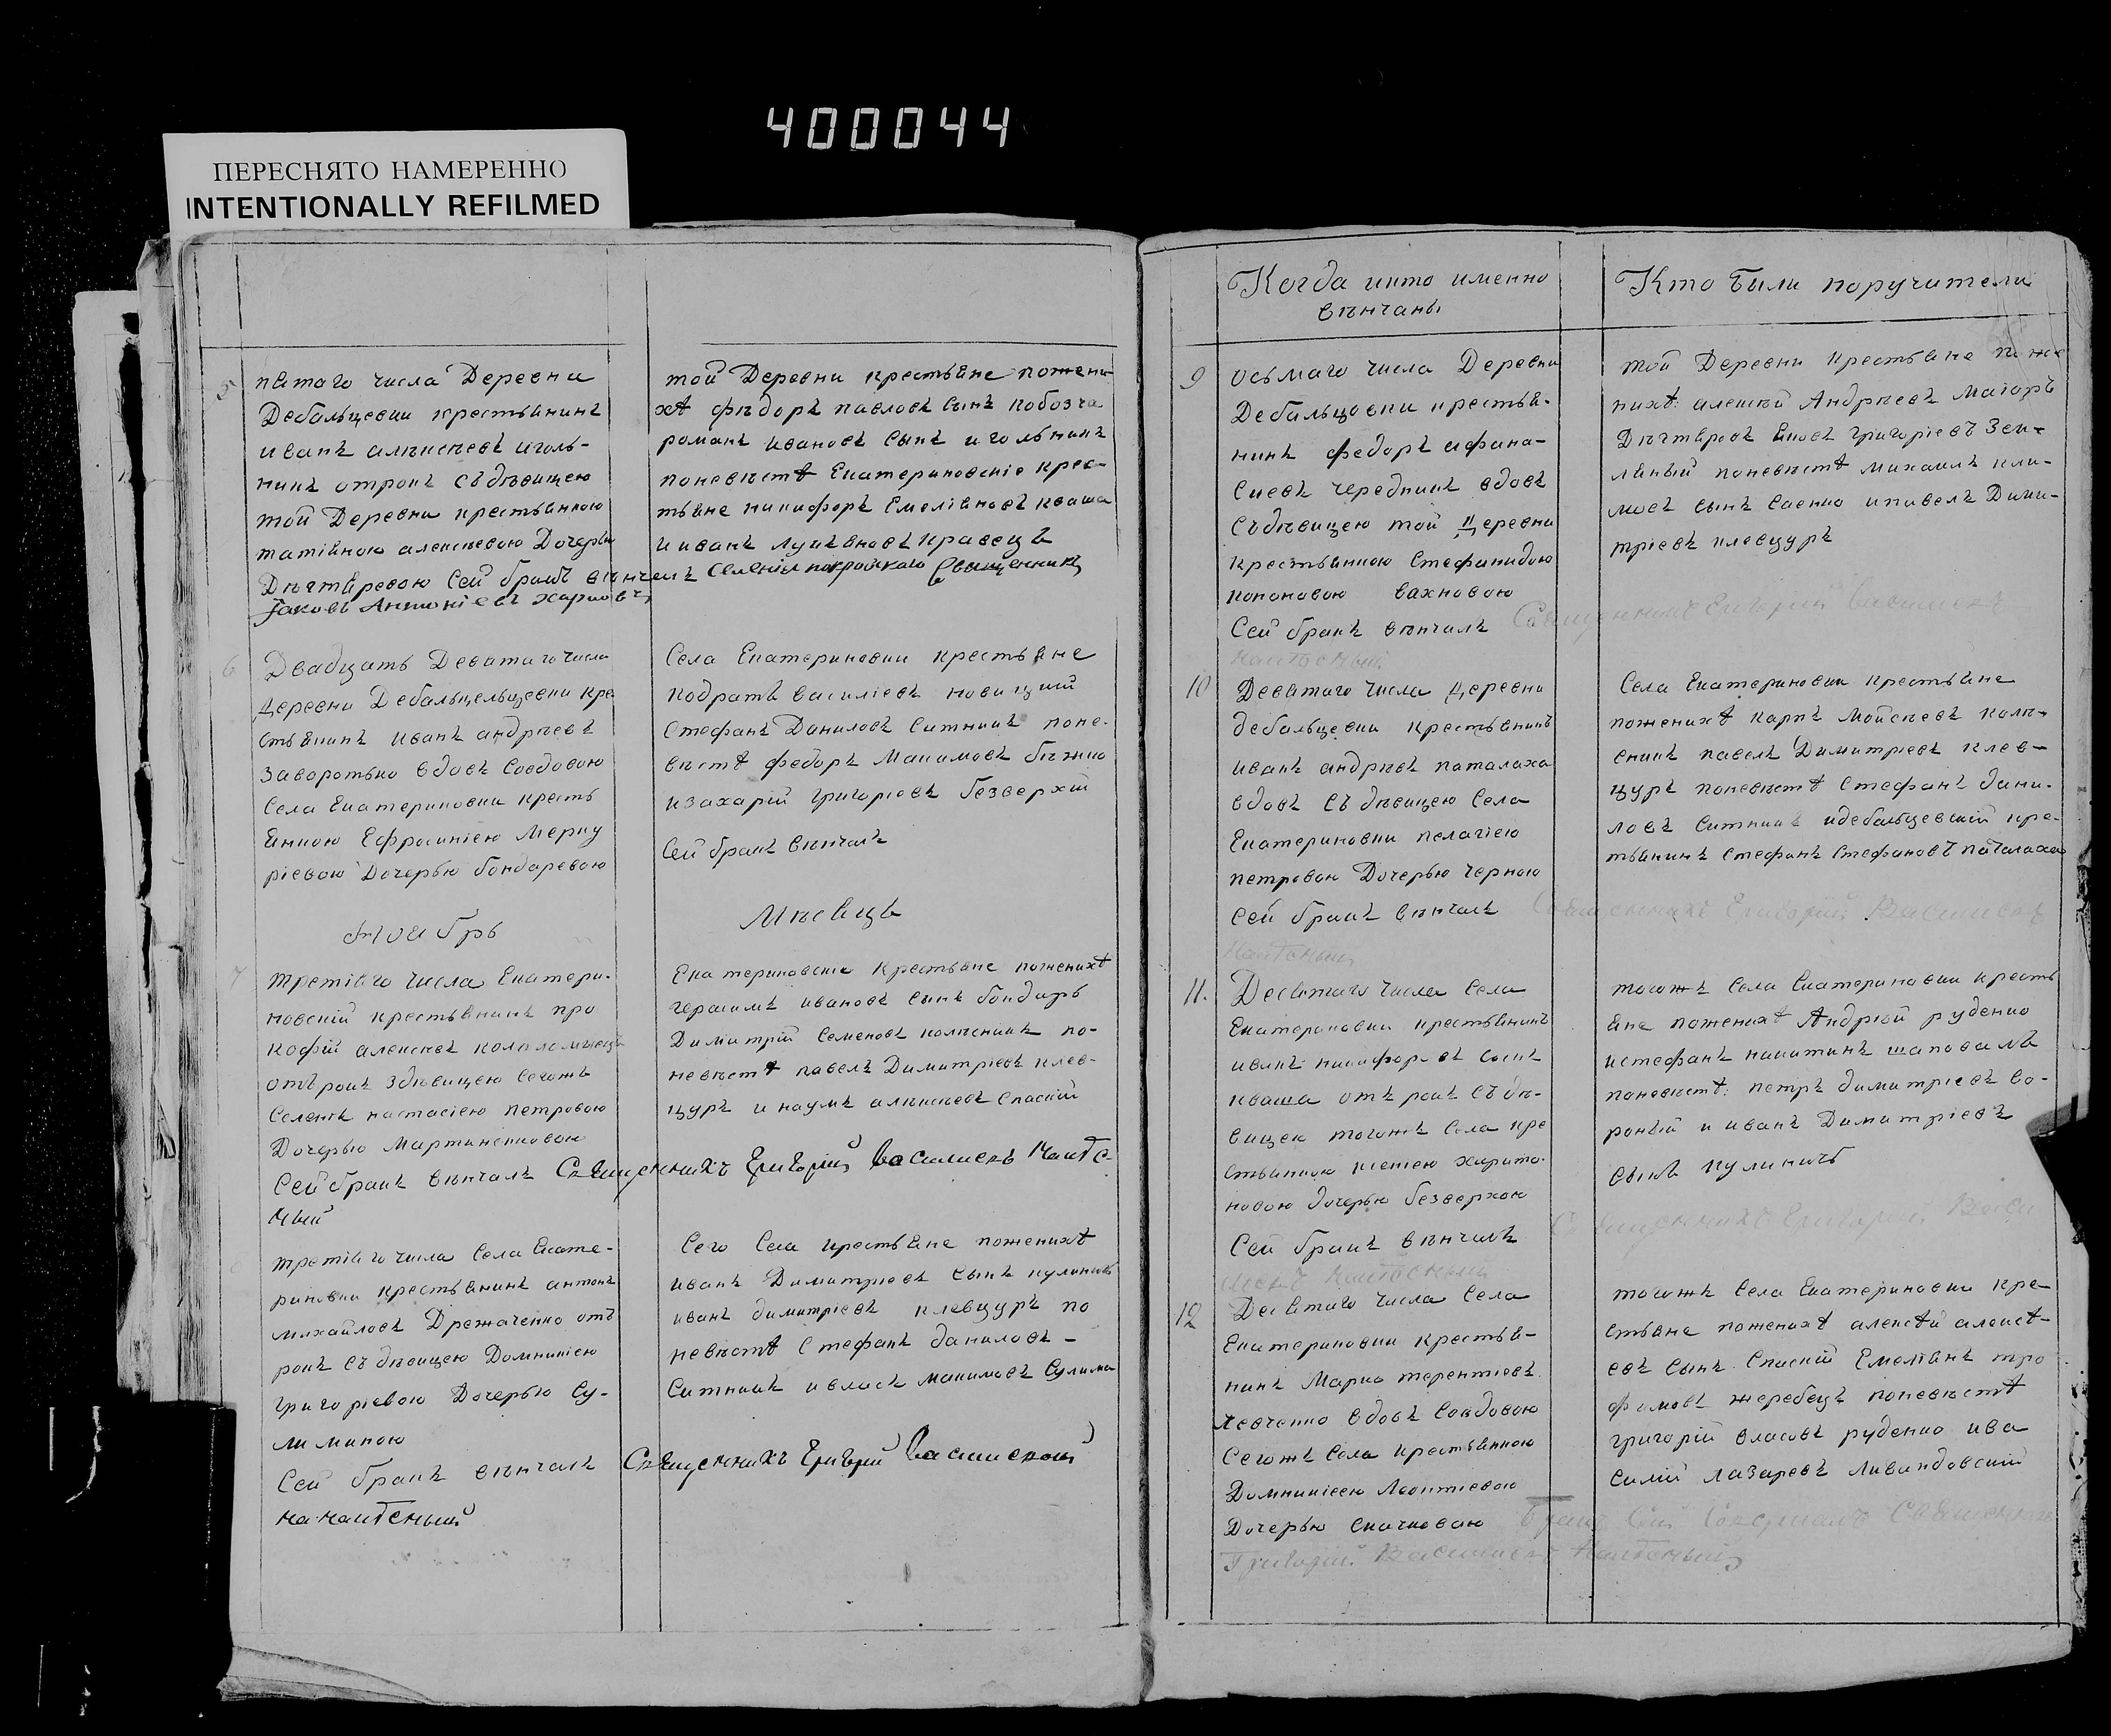 400044
ПЕРЕСНЯТО НАМЕРЕННО
INTENTIONALLY REFILMED
5
пятаго числа Деревни
Дебальцевки крестьянинъ
иванъ алѣксѣевъ иголь-
никъ отрокъ съ дѣвицею
той Деревни крестьянкою
татіяною алексѣевою Дочерью
Дѣгтяревою Сей бракъ вѣнчалъ селенія покройкаго Священникъ
Іаковъ Антоніевъ
той Деревни крестьяне пожени-
хѣ фѣдоръ павловъ сынъ
романъ ивановъ сынъ игольникъ
поневѣстѣ Екатериновскіе крес-
тьяне никифоръ Емеліяновъ кваша
и иванъ лукьяновъ кравецъ
6
Двадцать Девятаго числа
Деревни Дебальцельцевки кре
стьянинъ иванъ андрѣевъ
заворотько вдовъ совдовою
Села Екатериновки кресть
янкою Ефросиніею Мерку
ріевою Дочерью бондаревою
Села Екатериновки крестьяне
кодратъ василіевъ новицкий
Стефанъ Даниловъ Ситникъ поне-
вѣстѣ федоръ Макимовъ бѣжко
изахарій григоріевъ безверхій
Сей бракъ вѣнчалъ
Ноябрь
Мѣсяцъ
7
третіяго числа Екатери-
новскій крестьянинъ про
кофій алексѣевъ
отърокъ здѣвицею сегожъ
Селенія настасіею петровою
Дочерью Мартиненковою
Сей бракъ вѣнчалъ Священникъ Григорій Васильевъ
Екатериновскіе Крестьяне поженихѣ
герасимъ ивановъ сынъ бондарь
Димитрій Семеновъ колѣсникъ по-
невѣстѣ павелъ Димитріевъ клев-
цуръ и наумъ алѣксѣевъ Спаскій
третіяго числа Села Екате-
риновки крестьянинъ антонъ
михайловъ Дрежаченко отъ
рокъ съ дѣвицею Домникіею
григоріевою Дочерью Су-
лиминою
Сей бракъ вѣнчалъ Священникъ Григорій
Сего Села крестьяне поженихѣ
иванъ Димитріевъ сынъ куликъ
иванъ димитріевъ клевцуръ по
невѣстѣ Стефанъ даниловъ -
Ситникъ и власъ макимовъ Сулима
Когда икто именно
вѣнчаны
Кто были поручители
9
осьмаго числа Деревни
Дебальцовки крестья-
нинъ федоръ афана-
сиевъ чередникъ вдовъ
Съдѣвицею той Деревни
крестьянкою Стефанидою
кононовою вахновою
Сей бракъ вѣнчалъ Священникъ Григорій
той Деревни крестьяне поже
нихѣ: алексѣй Андрѣевъ
Дѣгтяревъ григоріевъ Зем-
ляный поневѣстѣ михаилъ кли-
мовъ сынъ Саенко ипавелъ Дими-
тріевъ клевцуръ
10
Девятаго числа Деревни
дебальцевки крестьянинъ
иванъ андрѣевъ паталаха
вдовъ съ дѣвицею Села
Екатериновки пелагіею
петровою Дочерью черною
Сей бракъ вѣнчалъ Священникъ Григорій
Села Екатериновки крестьяне
поженихѣ карпъ Мойсѣевъ колѣ-
сникъ павелъ Димитріевъ клев-
цуръ поневѣстѣ Стефанъ дани-
ловъ Ситникъ идебальцевскій кре-
тьянинъ Стефанъ Стефановъ паталаха
11.
Десятаго числа Села
Екатериновки крестьянинъ
иванъ никифоровъ сынъ
кваша отъ рокъ съ дѣ-
вицею тогожъ Села кре
стьянкою ксеніею харито-
новою дочерью безверхою
Сей бракъ вѣнчалъ Священникъ Григорій
тогожъ Села Екатериновки кресть
яне поженихѣ Андрѣй руденко
истефанъ никитинъ шаповалъ
поневѣстѣ: петръ димитріевъ во-
роный и иванъ Димитріевъ
сынъ
12
Десятаго числа Села
Екатериновки крестья-
нинъ Марко терентіевъ
левченко вдовъ совдовою
Сегожъ Села крестьянкою
Домникіею Леонтіевою
Дочерью скачковою Бракъ Сей Священникъ
Григорій
тогожъ Села Екатериновки кре-
стьяне поженихѣ алексѣй алексѣ-
евъ сынъ Спаскій Емеліянъ тро
фимовъ жеребецъ поневѣстѣ
григорій власовъ руденко ива
силій лазаревъ